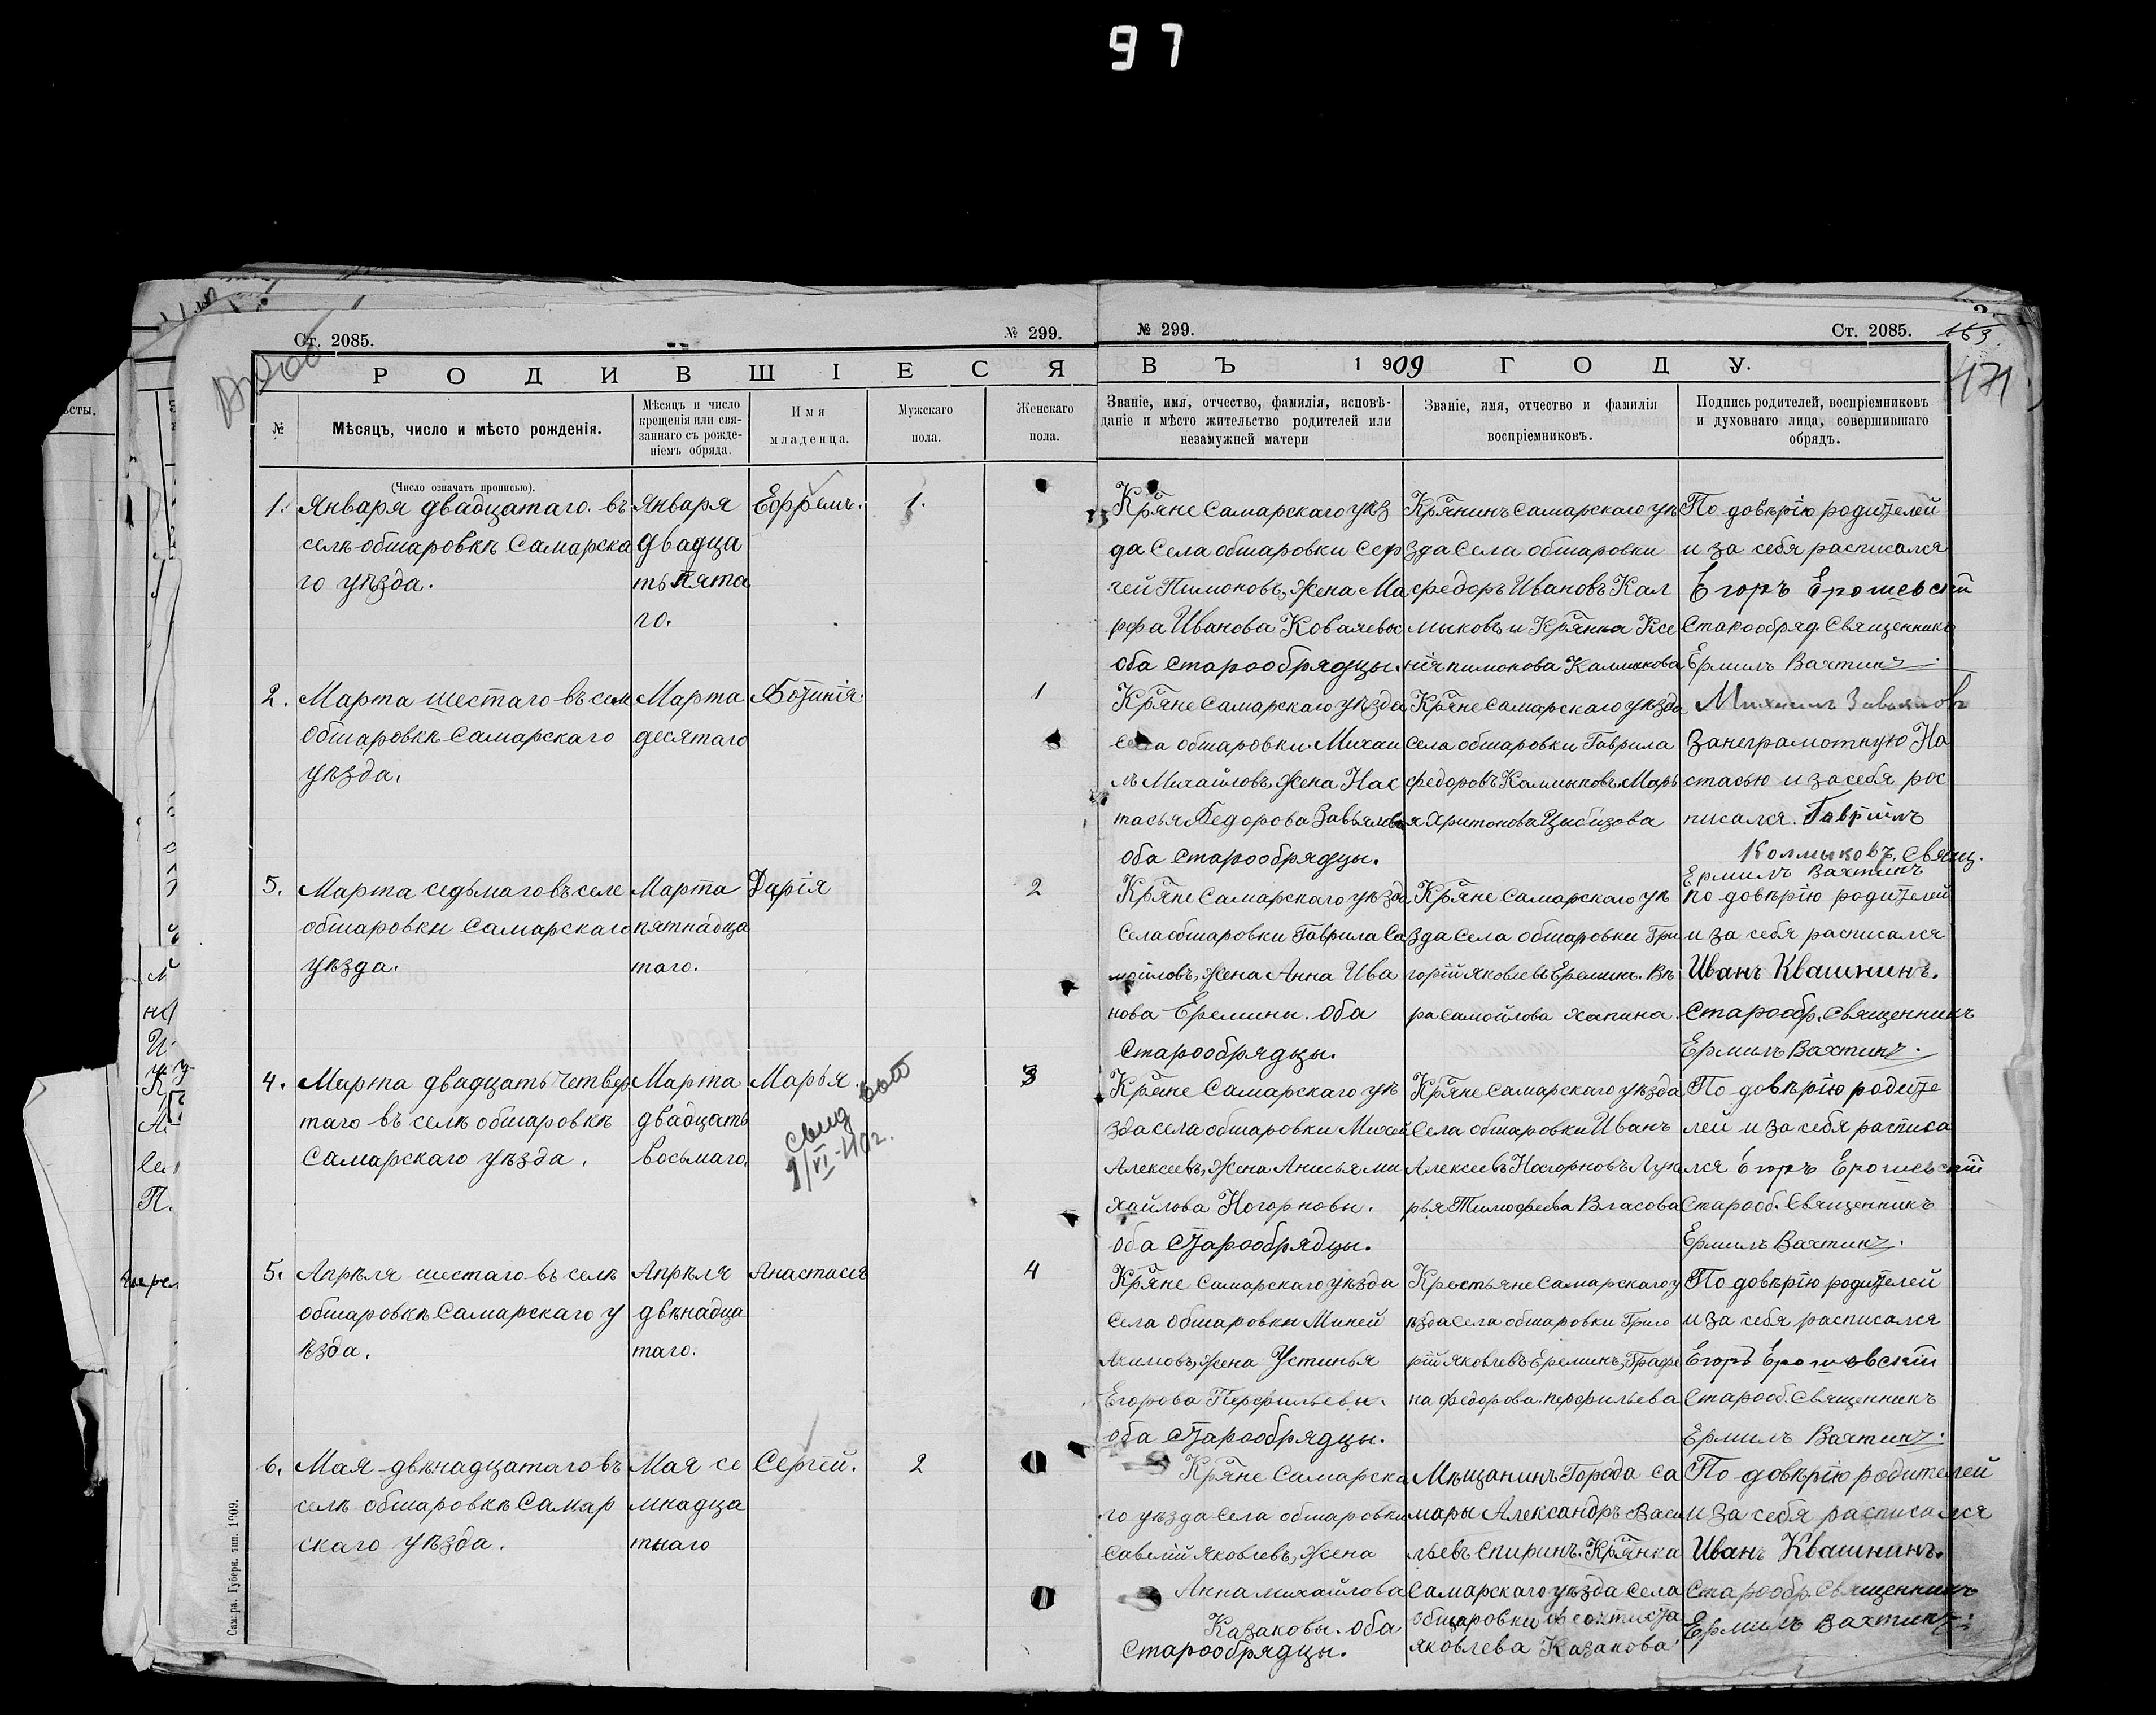 97
Ст. 2085.
№ 299.
№ 299.
Ст. 2085.
163
171
РОДИВШІЕСЯ
ВЪ 1909 ГОДУ.
№
Мѣсяцъ, число и мѣсто рожденія.
Мѣсяцъ и число
крещенія или свя-
заннаго съ рожде-
ніемъ обряда.
Имя
младенца.
Мужскаго
пола.
Женскаго
пола.
Званіе, имя, отчество, фамилія, исповѣ-
даніе и мѣсто жительство родителей или
незамужней матери
Званіе, имя, отчество и фамилія
воспріемниковъ.
Подпись родителей, воспріемниковъ
и духовнаго лица, совершившаго
обрядъ.
(Число означать прописью).
1.
Января двадцатаго. въ
селѣ обшаровкѣ Самарска
го уѣзда.
Января
двадца
ть пята
го.
Ефремъ.
1.
Кр̃яне Самарскаго уѣз
да Села обшаровки Сер
гей Пимоновъ, Жена Ма
рфа Иванова Ковалевы
оба старообрядцы.
Кр̃янинъ Самарскаго уѣ
зда Села обшаровки
Федоръ Ивановъ Кал
мыковъ и Кр̃янка Ксе
нія пимонова Калмыкова
По довѣрію родителей
и за себя расписался
Егоръ Ерошевскій
Старообряд. Священникъ
Ермилъ Вахтинъ
2.
Марта шестаго въ сел
Обшаровкѣ Самарскаго
уѣзда.
Марта
десятаго
1
Кр̃яне Самарскаго уѣзда
Села обшаровки Михаи
лъ Михайловъ, Жена Нас
тасья Федорова Завьяловы
оба старообрядцы.
Кр̃яне Самарскаго уѣзда
Села обшаровки Гаврила
Федоровъ Калмыковъ Марь
я Харитонова Цибизова
Михаилъ Завьяловъ
За неграмотную На
стасью и за себя рос
писался. Гавріилъ
Колмыковъ. Свящ.
Ермилъ Вахтинъ
3.
Марта седьмаго въ селе
обшаровки Самарскаго
уѣзда.
Марта
пятнадца
таго.
Дарія
2
Кр̃яне Самарскаго уѣзда
Села обшаровки Гаврила Са
мойловъ, Жена Анна Ива
нова Еремины. Оба
Старообрядцы.
Кр̃яне Самарскаго уѣ
зда Села обшаровки Гри
горій Яковлевъ Ереминъ. Вѣ
ра Самойлова Хапина.
По довѣрію родителей
и за себя расписался
Иванъ Квашнинъ.
Старообр. Священникъ
Ермилъ Вахтинъ.
4.
Марта двадцать четвер
таго въ селѣ обшаровкѣ
Самарскаго уѣзда.
Марта
двадцать
восьмаго.
Марья.
3
Кр̃яне Самарскаго уѣ
зда села обшаровки Михей
Алексеевъ, Жена Анисья ми
хайлова Ногорновы.
оба Старообрядцы.
Кр̃яне Самарскаго уѣзда
Села обшаровки Иванъ
Алексеевъ Ногорновъ Лук
рья Тимофеева Власова
По довѣрію родите
лей и за себя расписа
лся Егоръ Ерошевскій
Старооб. Священникъ
Ермилъ Вахтинъ.
5.
Апрѣля шестаго въ селѣ
обшаровкѣ Самарскаго у
ѣзда.
Апрѣля
двѣнадца
таго.
Анастасія
4
Кр̃яне Самарскаго уѣзда
Села Обшаровки Миней
Акимовъ, Жена Устинья
Егорова Перфильевы.
оба Старообрядцы.
Крестьяне Самарскаго у
ѣзда Села обшаровки Григо
рій Яковлевъ Ереминъ, Графе
на Федорова Перфильева
По довѣрію родителей
и за себя расписался
Егоръ Ерошевскій
Старооб. Священникъ
Ермилъ Вахтинъ.
6.
Мая двѣнадцатаго въ
селѣ обшаровкѣ Самар
скаго уѣзда.
Мая се
мнадца
таго
Сергѣй.
2
Кр̃яне Самарска
го уѣзда Села обшаровки
Савелій Яковлевъ, Жена
Анна михайлова
Казаковы. Оба
Старообрядцы.
Мѣщанинъ Города Са
мары Александръ Васи
льевъ Спиринъ. Кр̃янка
Самарскаго уѣзда Села
Обшаровки Феоктиста
Яковлева Казакова
По довѣрію родителей
и за себя расписался
Иванъ Квашнинъ.
Старообр. Священникъ
Ермилъ Вахтинъ.
Самара. Губерн. тип. 1909.